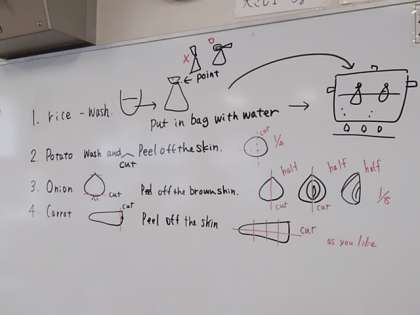 X O
point
1. rice - wash.
put in bag with water
2. Potato wash and cut Peel off the skin. cut
3. Onion cut Peel off the brown shin. half cut half cut half 1/8
4 Carrot cut Peel off the skin cut
as you like